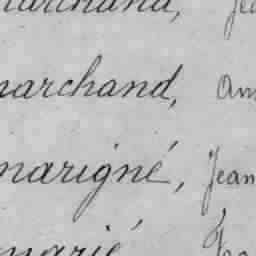 marchand,
marchand,
marigné, Jean
marié